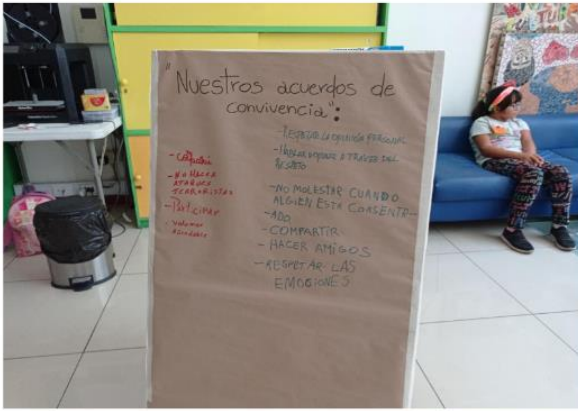 "Nuestros acuerdos de
convivencia":
- Empatía
- NO HACER
ATAQUES
TERRORISTAS
- Participar
- Volumen
Adecuado
- RESPETAR LA OPINIÓN PERSONAL
- HABLAR SIEMPRE A TRAVES DEL
RESPETO
- NO MOLESTAR CUANDO
ALGIEN ESTA CONSENTR-
- ADO
- COMPARTIR
- HACER AMIGOS
- RESPETAR LAS
EMOCIONES